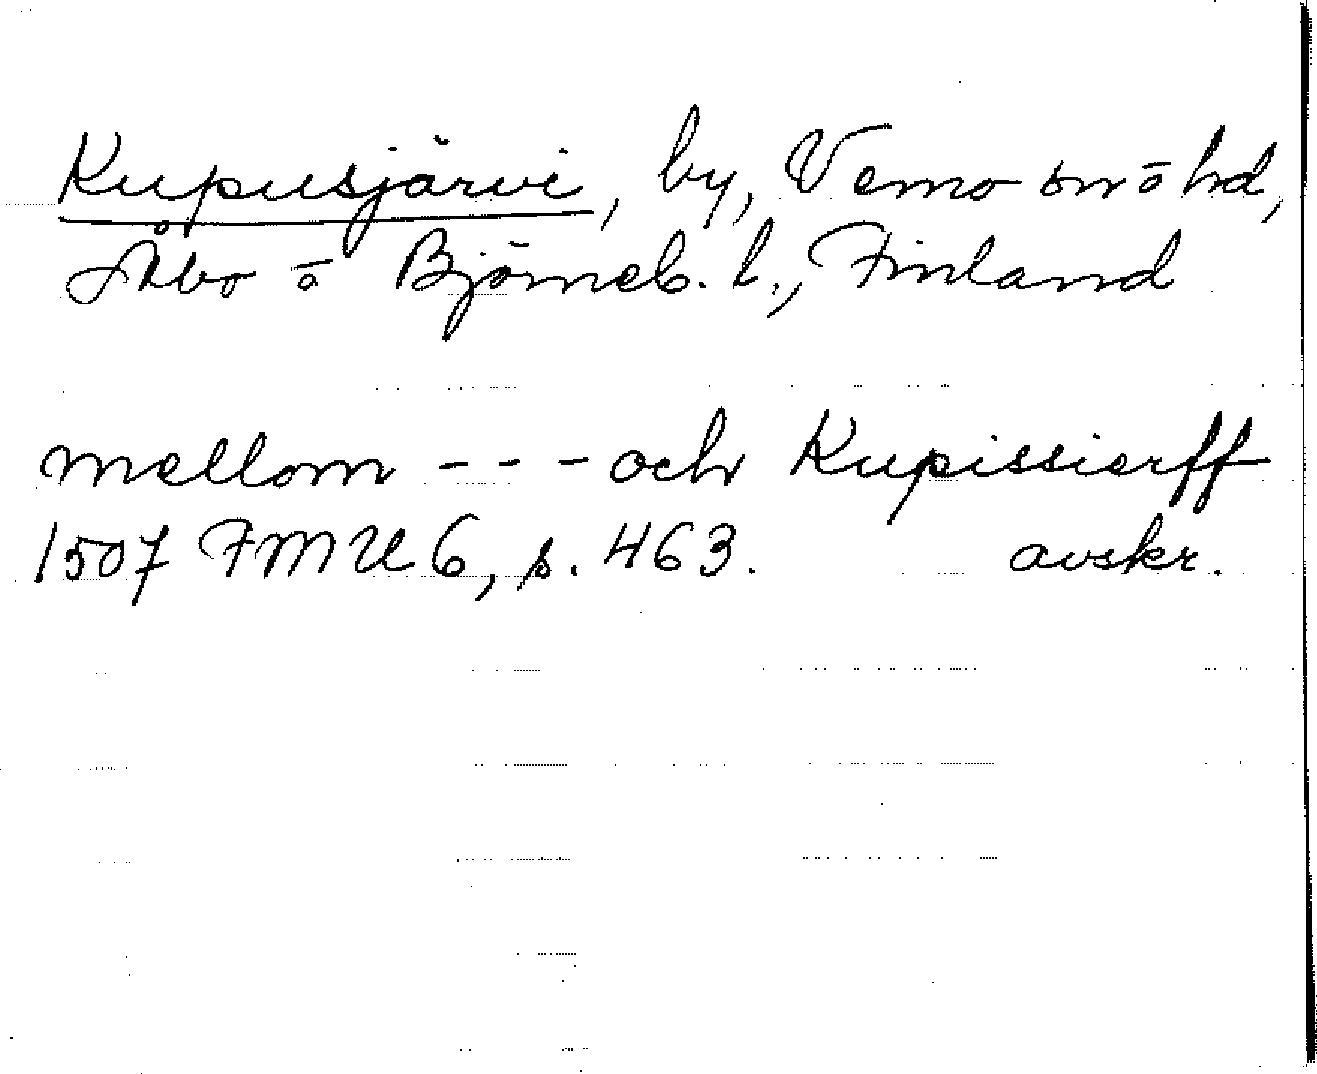 Kupusjärvi, by, Vemo sn o hd,
Åbo o Björneb. l., Finland
mellom - - - och Kupissierff
1507 FMU 6, s. 463. avskr.